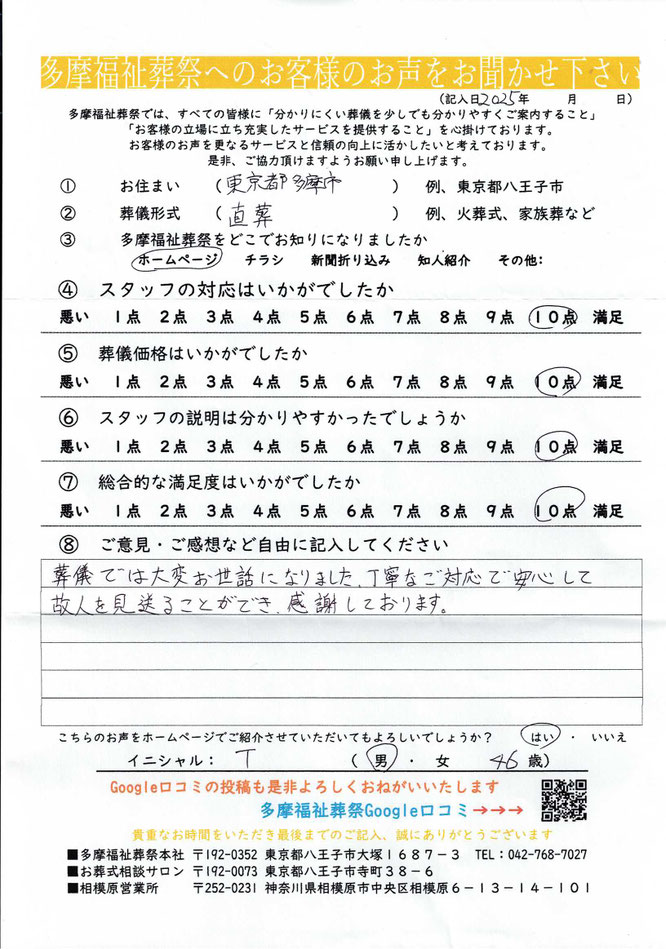 多摩福祉葬祭へのお客様のお声をお聞かせ下さい
(記入日2025年　　月　　日)
多摩福祉葬祭では、すべての皆様に「分かりにくい葬儀を少しでも分かりやすくご案内すること」
「お客様の立場に立ち充実したサービスを提供すること」を心掛けております。
お客様のお声を更なるサービスと信頼の向上に活かしたいと考えております。
是非、ご協力頂けますようお願い申し上げます。
① お住まい （東京都多摩市） 例、東京都八王子市
② 葬儀形式 （直葬） 例、火葬式、家族葬など
③ 多摩福祉葬祭をどこでお知りになりましたか
ホームページ チラシ 新聞折り込み 知人紹介 その他:
④ スタッフの対応はいかがでしたか
悪い 1点 2点 3点 4点 5点 6点 7点 8点 9点 10点 満足
⑤ 葬儀価格はいかがでしたか
悪い 1点 2点 3点 4点 5点 6点 7点 8点 9点 10点 満足
⑥ スタッフの説明は分かりやすかったでしょうか
悪い 1点 2点 3点 4点 5点 6点 7点 8点 9点 10点 満足
⑦ 総合的な満足度はいかがでしたか
悪い 1点 2点 3点 4点 5点 6点 7点 8点 9点 10点 満足
⑧ ご意見・ご感想など自由に記入してください
葬儀では大変お世話になりました。丁寧なご対応で安心して
故人を見送ることができ、感謝しております。
こちらのお声をホームページでご紹介させていただいてもよろしいでしょうか？ はい ・ いいえ
イニシャル: T （ 男 ・ 女 46歳）
Google口コミの投稿も是非よろしくおねがいいたします
多摩福祉葬祭Google口コミ→→→
貴重なお時間をいただき最後までのご記入、誠にありがとうございます
■多摩福祉葬祭本社 〒192-0352 東京都八王子市大塚1687-3 TEL:042-768-7027
■お葬式相談サロン 〒192-0073 東京都八王子市寺町38-6
■相模原営業所 〒252-0231 神奈川県相模原市中央区相模原6-13-14-101